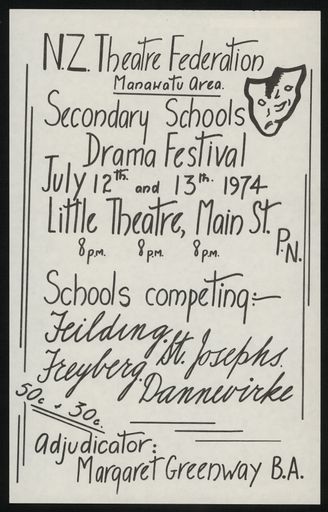 N.Z. Theatre Federation
Manawatu Area.
Secondary Schools
Drama Festival
July 12th and 13th 1974
Little Theatre, Main St.
P.N.
8 p.m. 8 p.m. 8 p.m.
Schools competing:-
Feilding. St. Josephs.
Freyberg. Dannevirke
50c + 30c.
Adjudicator:
Margaret Greenway B.A.